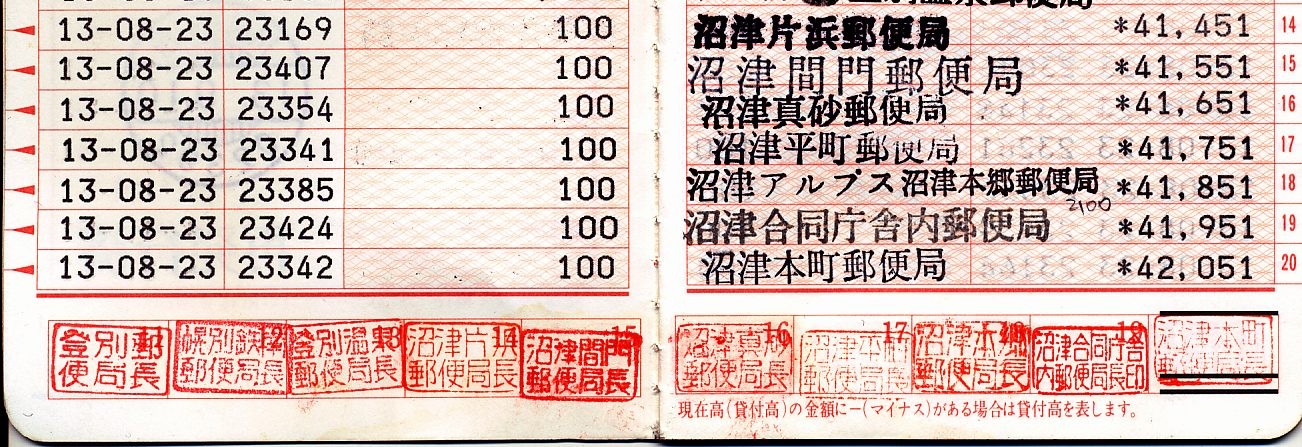 13-08-23 23169 100 沼津片浜郵便局 *41,451 14
13-08-23 23407 100 沼津間門郵便局 *41,551 15
13-08-23 23354 100 沼津真砂郵便局 *41,651 16
13-08-23 23341 100 沼津平町郵便局 *41,751 17
13-08-23 23385 100 沼津アルプス沼津本郷郵便局 *41,851 18
2100
13-08-23 23424 100 沼津合同庁舎内郵便局 *41,951 19
13-08-23 23342 100 沼津本町郵便局 *42,051 20
登別郵便局長 11
幌別鉄南郵便局長 12
登別温泉郵便局長 13
沼津片浜郵便局長 14
沼津間門郵便局長 15
沼津真砂郵便局長 16
17
沼津本郷郵便局長 18
沼津合同庁舎内郵便局長印 19
沼津本町郵便局長
現在高(貸付高)の金額に-(マイナス)がある場合は貸付高を表します。